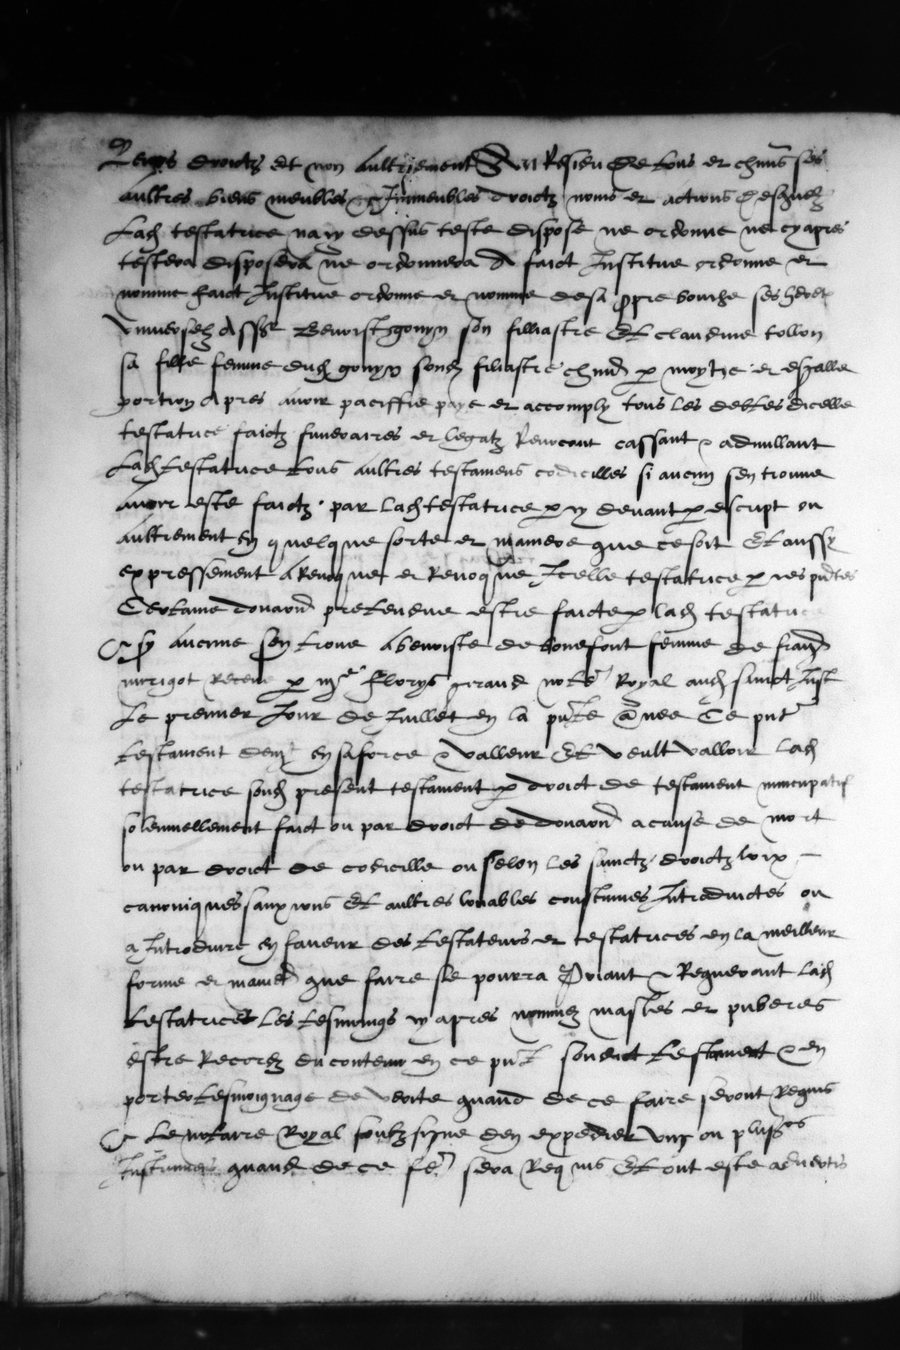 Leurs droictz et non aultrement Et au Residu de tous et chuns ses
aultres biens meubles Immeubles droictz noms et actions desquelz
Lad testatrice na cy dessus teste dispose ne ordonne ne cy apres
testera disposera ne ordonnera A faict Institue ordonne et
nomme faict Institue ordonne et nomme de sa propre bouche ses hers
universelz Assr Benoist gonyn son filliastre Et claudine tollon
sa fille femme dud gonyn sond filiastre chund p moytie et esgalle
portion Apres avoir paciffie paye et accomply tous les debtes dicelle
testatrice faictz funeraires et legatz Revocant cassant & adnullant
Lad testatrice tous aultres testamens codicilles si aucun sen trouve
avoir este faictz par lad testatrice p cy devant p escript ou
Aultrement En quelque sorte et maniere que ce soit Et aussy
expressement A Revoque et Revoque Icelle testatrice p ces pntes
Certaine donaond pretendue estre faicte p lad testatrice
sy aucune sen trove A benoiste de bonefont femme de franz
mirigot Receue p me florys giraud notre Royal aud sainct Just
Le premier Jour de Juillet en la pnte annee Ce pnt
testament demt en sa force & valleur Et veult valloir lad
testatrice sond present testament p droict de testament nuncupatif
solennellement faict ou par droict de donaond a cause de mort
ou par droict de codicille ou selon les sainctz droictz loix
canoniques sanxions Et aultres louables coustumes Introduictes ou
a Introduire en faveur des testateurs et testatrices en la meilleur
forme et maniere que faire se pourra Priant & Requerant lad
testatrices Les tesmoings cy apres nommez masles et puberes
estre Recordz du contenu en ce pnt sondict testament & en
porter tesmoignage de verite quand de ce faire seront Requis
Et Le notaire Royal soubzsigne den expedier ung ou pluss
Instrumens quand de ce fe sera Requis Et ont este advertis